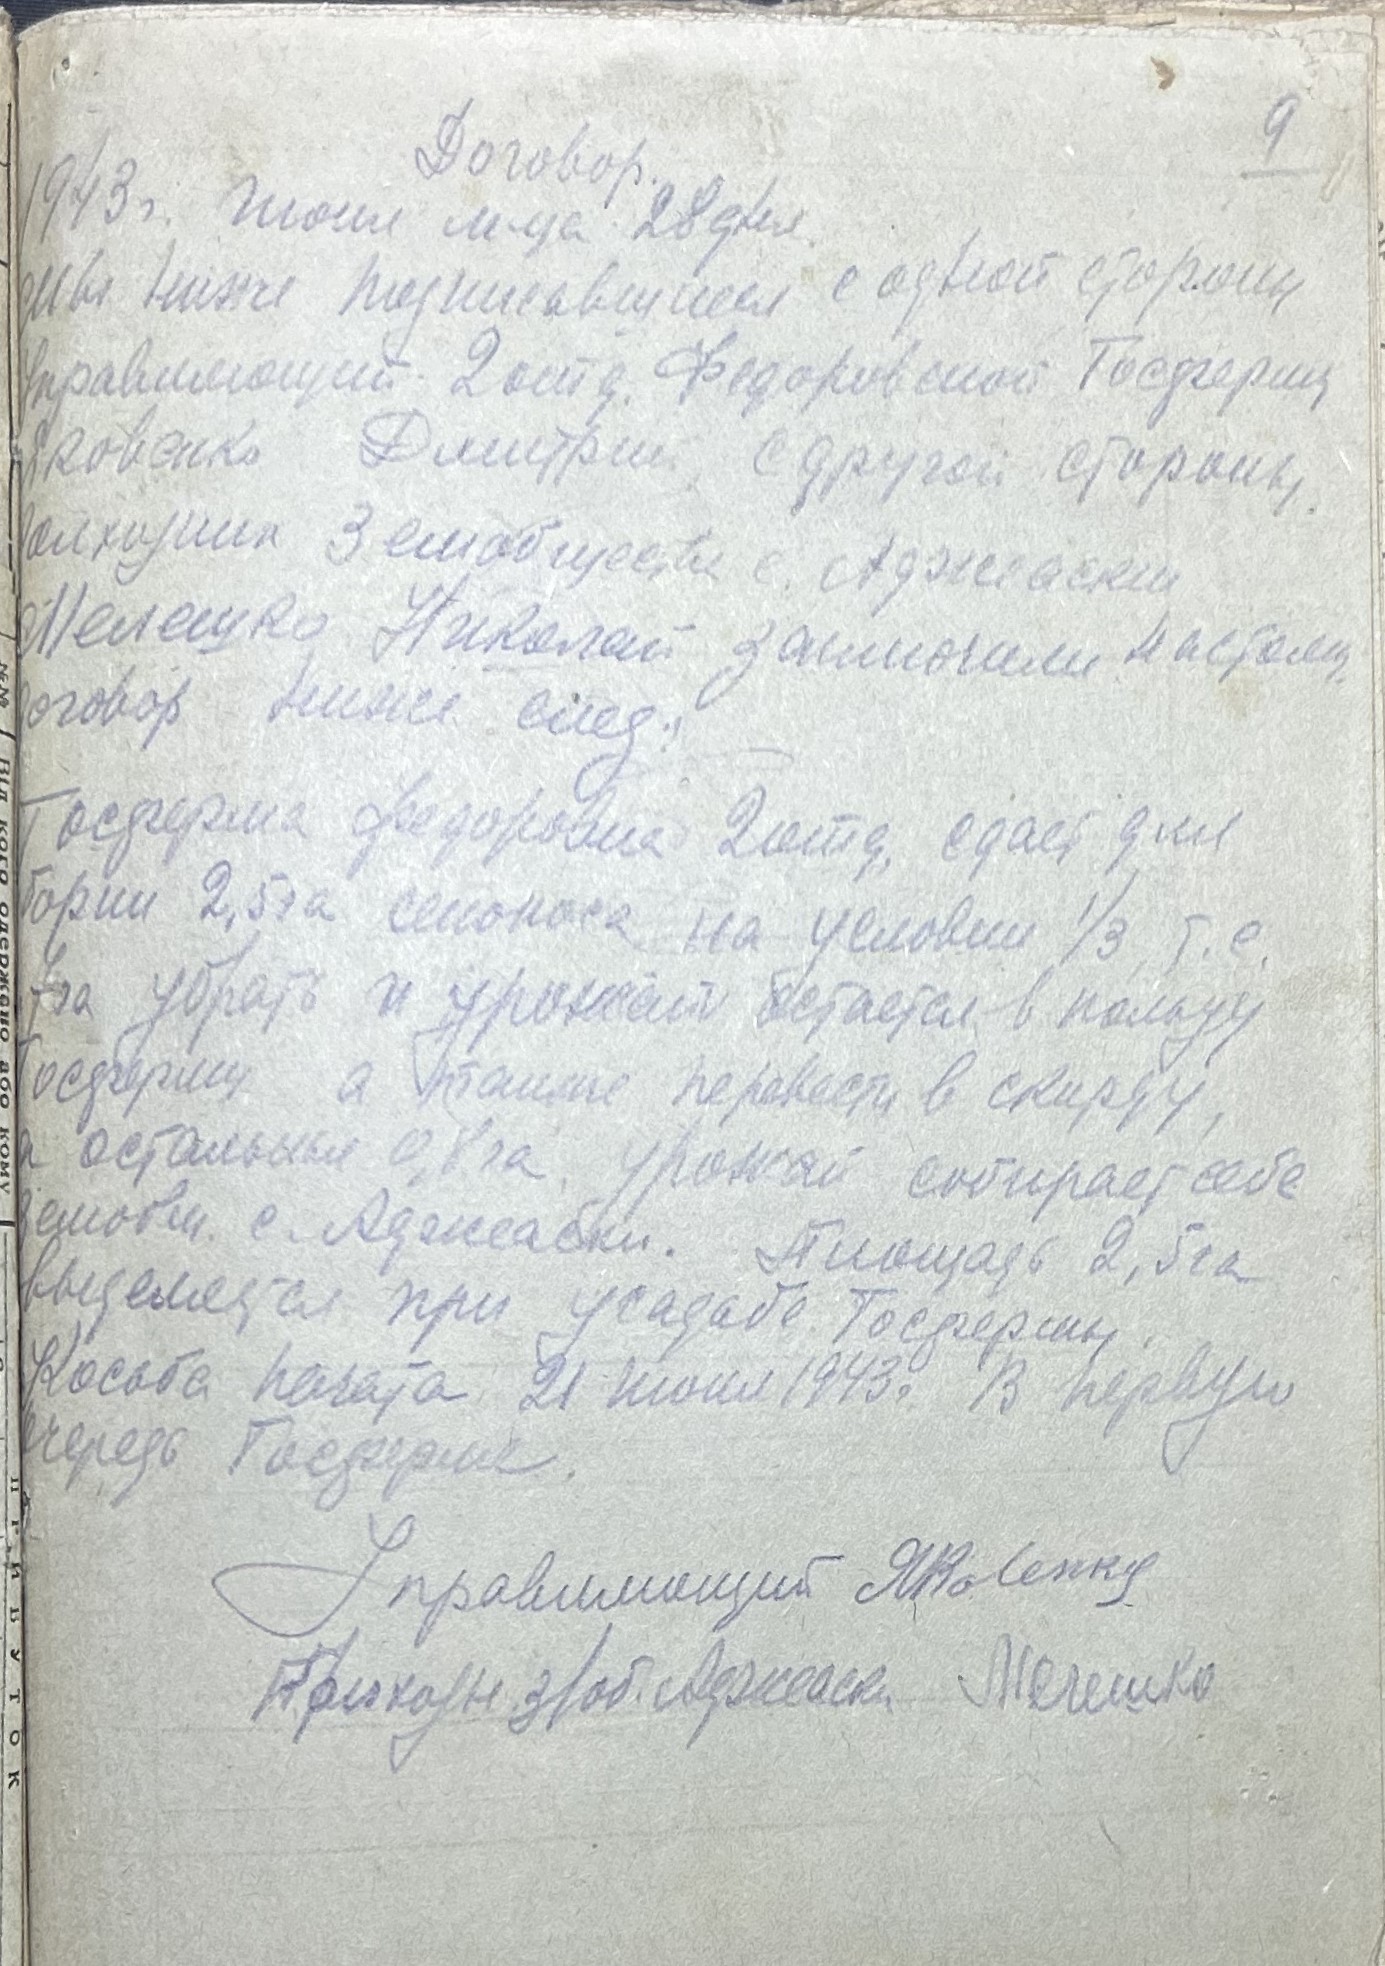 9
Договор.
1943 г. июня м-ца 28 дня.
мы ниже подписавшиеся с одной стороны
Управляющий 2 отд. Федоровской Госфермы
Яковенко Дмитрий, с другой стороны,
Земобщества с. Аджиаски
Мелешко Николай заключили настоящ.
договор ниже след.:
Госферма Федоровка 2 отд. сдает для
уборки 2,5 га сенокоса на условии 1/3 т.е.
га убрать и урожай остается в пользу
Госфермы а также перевести в скирду,
а остальные га урожай собирает себе
земобщ. с. Аджиаски. Площадь 2,5 га
выделяется при усадьбе Госфермы.
Косьба начата 21 июня 1943 г. В первую
очередь Госферме.
Управляющий Яковенко
Аджиаск. Мелешко
від кого одержано або кому